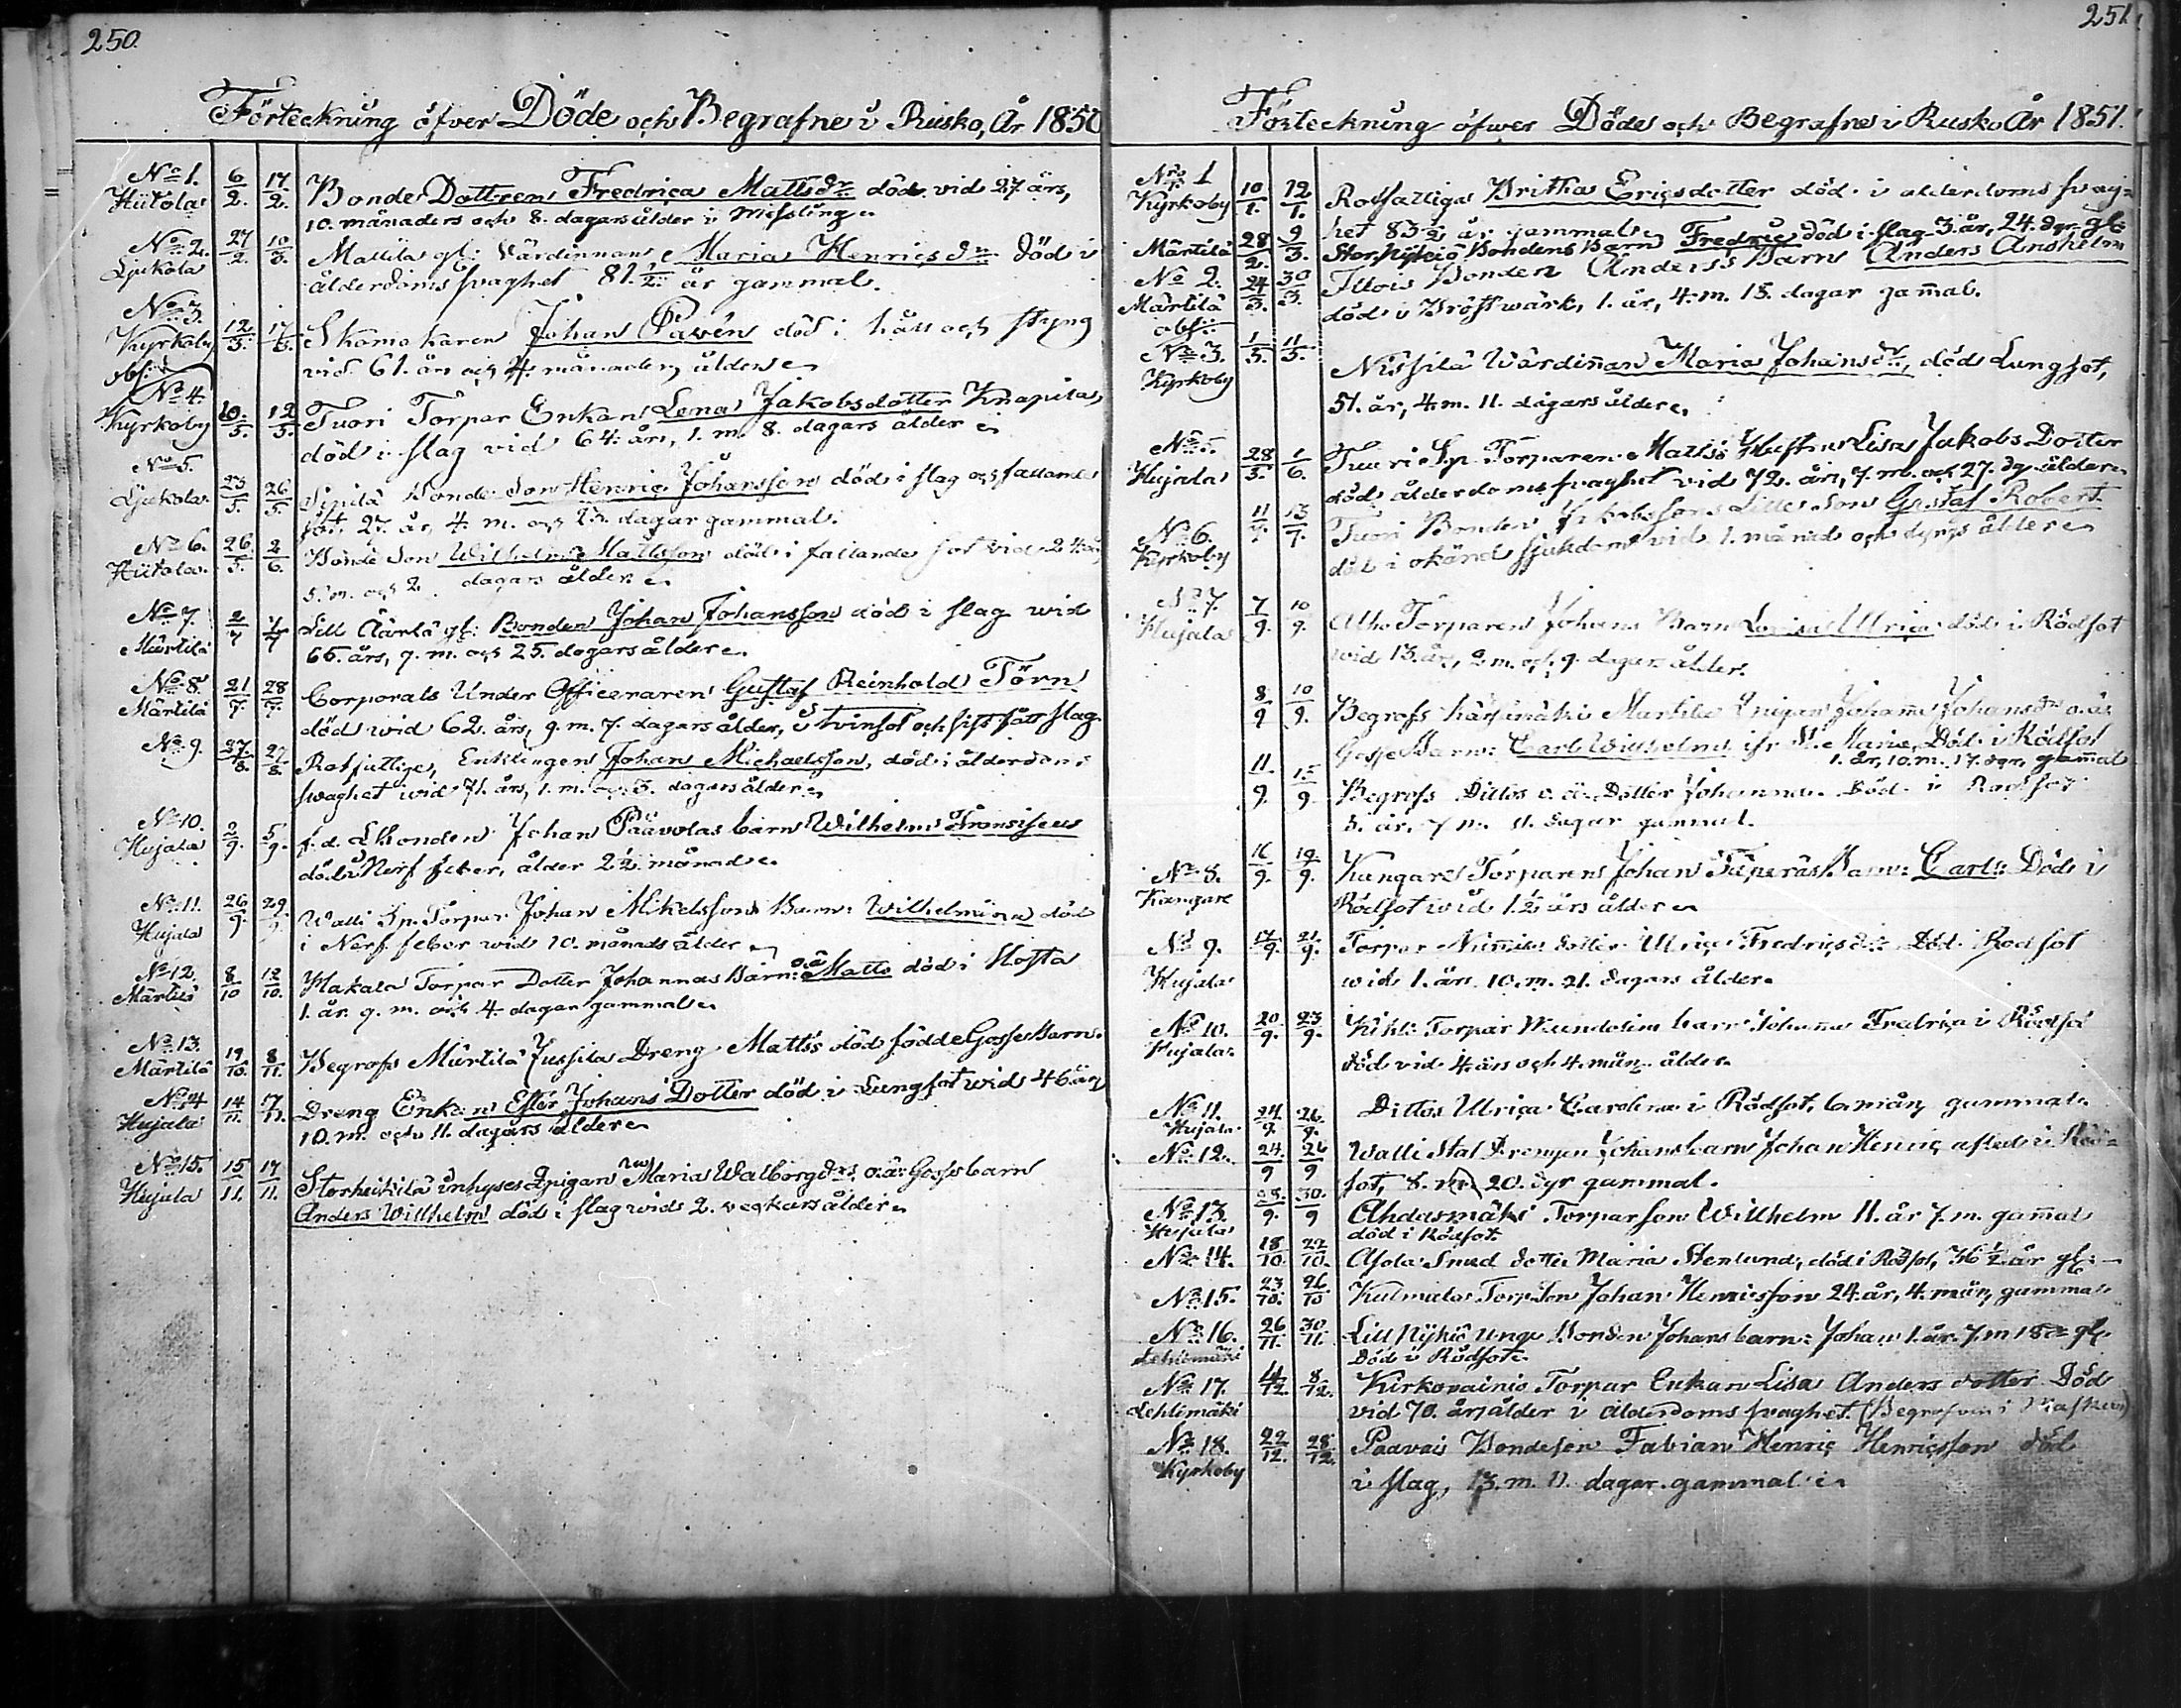 250.
Förteckning öfver Döde och Begrafne i Rusko, År 1850
No 1. 6/2. 17/2. Bonde Dottren Fredrica Matts dr död vid 27 års,
Hiitola 10. månaders och 8. dagars ålder i Messling
No 2. 27/2. 10/3. Mattila gl: Värdinnan, Maria Henrics dr Död i
Ljukola ålderdoms svaghet 81. 1/2 år gammal.
No 3.
Kyrkoby 12/3. 17/3. Skomakaren Johan Pavén död i håll och styng
obs: vid 61. års och 4. månaders ålder
No 4.
Kyrkoby 10/5. 12/5. Tuori Torpar Enkan Lena Jakobsdotter Knapila,
död i slag vid 64. års, 1. m. 8. dagars ålder
No 5.
Ljukola 23/5. 26/5. Sipilä Bonde Son Henric Johansson död i slag och fallande
sot, 27. år, 4. m. och 23. dagar gammal.
No 6. 26/5. 2/6. Bonde Son Wilhelm Mattsson död i fallande sot vid 24 års
Hiitola 5. m. och 2. dagars ålder
No 7. 2/7 7/7 Lill Äärlä gl: Bonden Johan Johansson död i slag wid
Märtilä 65. års, 9. m. och 25. dagars ålder.
No 8. 21/7. 28/7. Corporals Under Officeraren Gustaf Reinhold Törn
Märtilä död wid 62. års, 9. m. 7. dagars ålder, i Tvinsot och sist fått slag.
No 9. 27/8. 29/8. Rotfattige, Enklingen Johan Michaelsson, död i ålderdoms
swaghet wid 71. års, 1. m. och 3. dagars ålder
No 10. 2/9. 5/9. f. d. Lbonden Johan Päävolas barn Wilhelm Fransiscus
Hujala död i Nerf feber, ålder 2 1/2 månad
No 11. 26/9. 29/9. Walli Sp. Torpar Johan Mikelssons Barn: Wilhelmina död
Hujala i Nerf. feber wid 10. månads ålder
No 12. 8/10 12/10. Makala Torpar Dotter Johannas Barn: o.ä. Matts död i Hosta
Märtilä 1. år. 9. m. och 4. dagar gammal
No 13. 19/10. 8/11. Begrofs Märtilä Jussila Dreng Matts's död födde Gosse Barn.
Märtilä
No 14 14/11. 17/11. Dreng Enkan Ester Johans Dotter död i Lungsot wid 46 års
Hujala 10. m. och 11. dagars ålder
No 15. 15/11. 17/11. Storheikilä inhyses Pigan Maria Walborg drs o.ä. Gosse barn
Hujala Anders Willhelm död i slag wid 2. veckars ålder
251.
Förteckning öfwer Döde och Begrafne i Rusko År 1851.
Nro 1 10/1. 12/1. Rotfattiga Britha Ericsdotter död i ålderdoms svag=
Kyrkoby het 83 1/2 år gammal
Märtilä 28/2. 9/3. Stor Nykiö Bondens Barn Fredric död i slag 3. år, 24. dgr. gl:
No 2. 24/3. 30/3. Illois Bonden Anders's Barn Anders Anshelm
Märtilä död i Bröstwärk, 1. år, 4. m. 15. dagar gammal.
obs:
No 3. 1/5. 11/5. Nissilä Wärdinnan Maria Johans dr, död Lungsot,
Kyrkoby 51. år, 4. m. 11. dagars ålder.
No 5. 28/5. 1/6. Tuori Sp. Torparen Matts's Hustru Lisa Jakobs Dotter
Hujala död ålderdoms svaghet vid 72. års, 7. m. och 27. dgs ålder
No 6. 11/7. 13/7. Tuori Bonden Jakobssons Lille Son Gustaf Robert
Kyrkoby död i okänd sjukdom vid 1. månad och dygns ålder
No 7. 7/9. 10/9. Alho Torparen Johans Barn Lovisa Ulrica död i Rödsot
Hujala wid 13. års, 2 m. och 9. dagars ålder.
8/9 10/9. Begrofs Märtilä Pigan Johanna Johans dr o.ä.
Gosse Barn: Carl Wilhelm ifr. Maria, Död i Rödsot
1. år, 10. m. 17. dgr, gammal
11/9. 15/9. Begrofs Dittos o. ä. Dotter Johanna. Död i Rödsot
5. år. 7 m. 11. dagar gammal.
No 8. 16/9. 19/9. Kangare Torparens Johan Barn: Carl: Död i
Kangare Rödsot wid 1 1/2 års ålder
No 9. 17/9. 21/9. Torpar dotter Ulrica Fredrics dr Död i Rödsot
Hujala wid 1. års. 10. m. 21. dagars ålder.
No 10. 20/9. 23/9. Torpar barn Johanna Fredrica i Rödsot
Hujala död vid 4. års och 4. mån. ålder.
No 11. 24/9. 26/9. Dittos Ulrica Carolina i Rödsot, 6. mån, gammal.
Hujala
No 12. 24/9 26/9 Walli Stal Drengen Johans barn Johan Henric afled i Röd=
sot, 8. m. 20. dgr gammal.
No 13. 28/9. 30/9 Ahdasmäki Torpar son Willhelm 11. år 7. m. gammal
Hujala död i Rödsot
No 14. 18/10. 22/10. Asola Smed dotter Maria Stenlund, död i Rödsot, 36 1/2 år gl:
No 15. 23/10. 26/10 Kulmala Torp. Son Johan Henricsson 24. år, 4. mån, gammal
No 16. 26/11. 30/11. Lill Nykiö unge Bonden Johans barn: Johan 1. år. 7. m 18 d. gl.
Lehtimäki Död i Rödsot
No 17. 4/12 8/12. Kirkovainio Torpar Enkan Lisa Anders dotter Död
Lehtimäki vid 70. års ålder i ålderdoms svaghet. (Begrafven i Masku)
No 18. 22/12. 28/12. Paavais Bondeson Fabian Henric Henricsson död
Kyrkoby i slag, 13. m. 11. dagar gammal